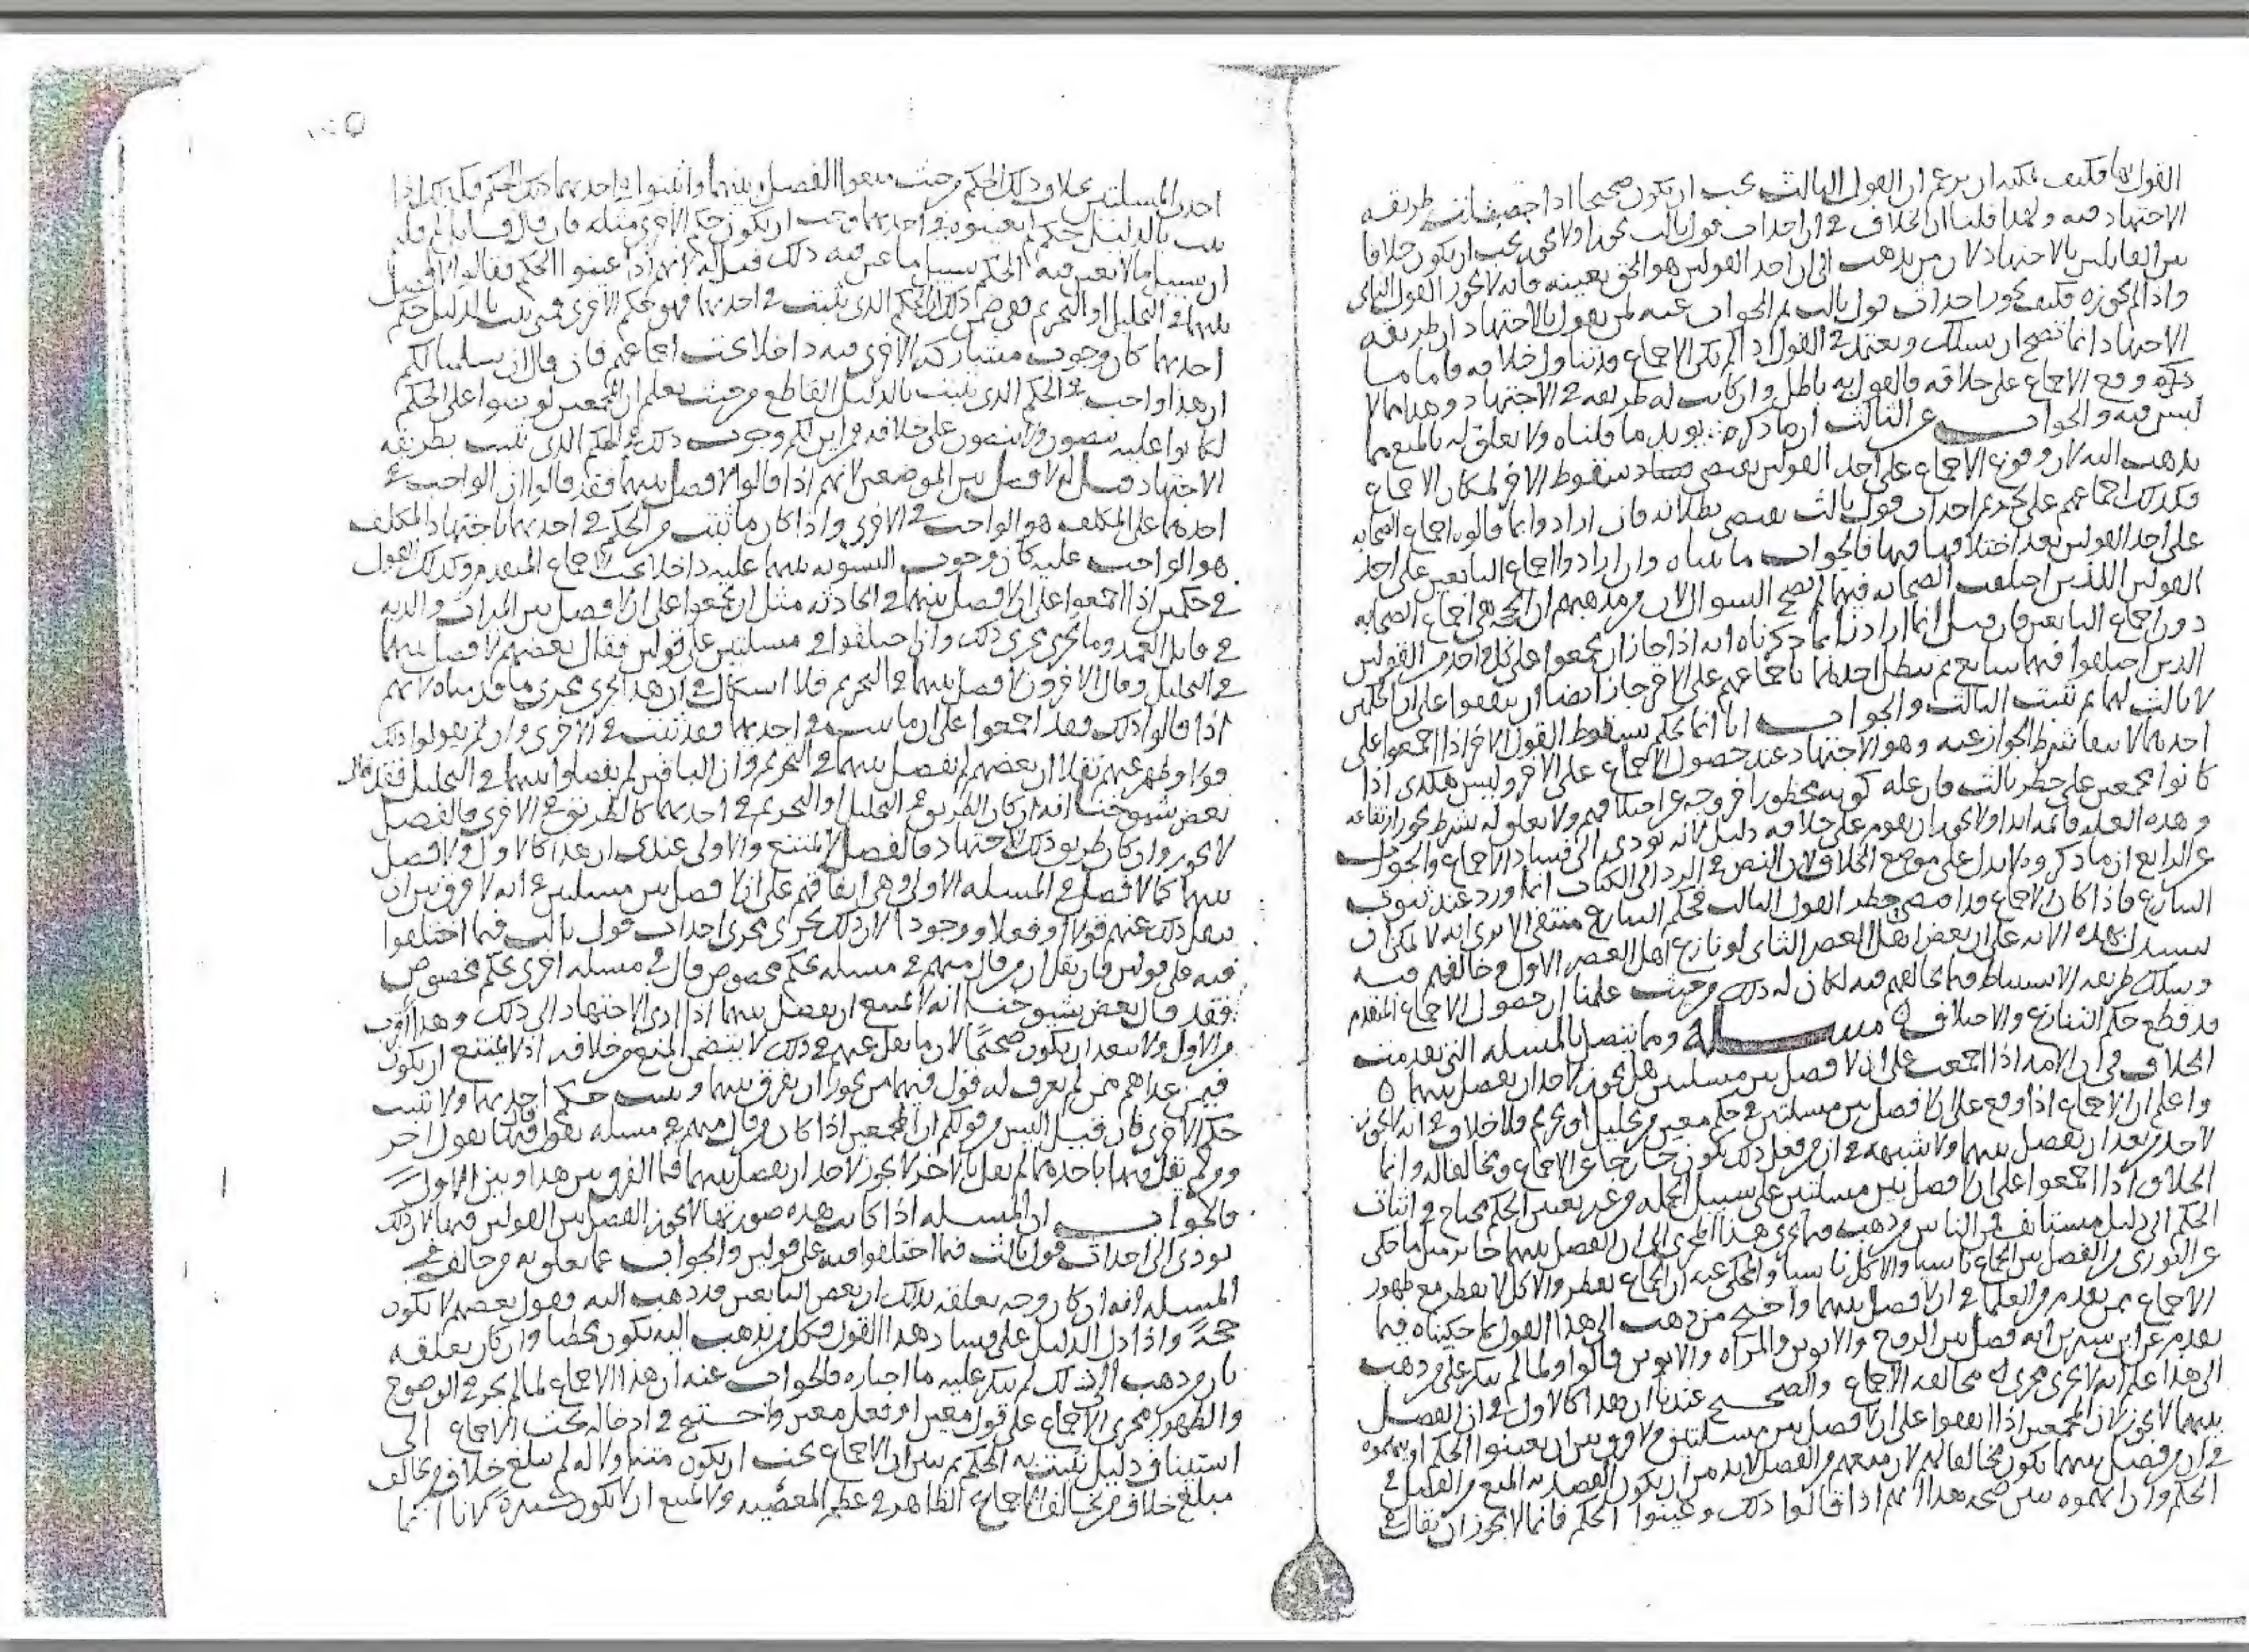 الاجتهاد فيه ولهذا قلنا ان الخلاف في ان احداث قول ثالث يجوز او لا يجوز يجب ان يكون خلافا
بين القائلين بالاجتهاد لان من يذهب الى ان احد القولين هو الحق بعينه فانه لا يجوز القول الثاني
واذا لم يجوزه فكيف يجوز احداث قول ثالث ثم الجواب عنه لمن يقول بالاجتهاد ان طريقه
الاجتهاد انما تصح ان يسلك ويعتمد في القول اذا لم يكن الاجماع قد تناول خلافه فاما ما
ذكره وقع الاجماع على خلافه فالقول به باطل وان كانت له طريقه في الاجتهاد وهذا مما لا
لبس فيه والجواب عن الثالث ان ما ذكره يويد ما قلناه ولا تعلق له بالمنع مما
يذهب اليه لان وقوع الاجماع على احد القولين يقتضي سقوط الاخر لمكان الاجماع
فكذلك اجماعهم على تحريم احداث قول ثالث يقتضي بطلانه فان ارادوا بما قالوه اجماع الصحابه
على احد القولين بعد اختلافها فيها فالجواب ما بيناه وان ارادوا اجماع التابعين على احد
القولين اللذين اختلفت الصحابه فيهما لم يصح السوال لان من مذهبهم ان الحجه في اجماع الصحابه
دون اجماع التابعين فان قيل انما اردنا بما ذكرناه انه اذا جاز ان يجمعوا على كل واحد من القولين
الذين اختلفوا فيهما سايغ ثم يبطل احدهما باجماعهم على الاخر جاز ايضا ان يتفقوا على ان الحكمين
لا ثالث لهما ثم يثبت الثالث والجواب انا انما نحكم بسقوط القول الاخر اذا اجمعوا على
احدهما لانتفا شرط الجواز عنه وهو الاجتهاد عند حصول الاجماع على الاخر وليس هكذى اذا
كانوا مجمعين على حظر ثالث فان عله كونه محظورا خروجه عن اختلافهم ولا تعلق له بشرط يجوز ارتفاعه
وهذه العله قائمه ابدا ولا يجوز ان يقوم على خلافه دليل لانه يودي الى فساد الاجماع والجواب
عن الرابع ان ما ذكروه لا يدل على موضع الخلاف لان النص في الرد الى الكتاب انما ورد عند ثبوت
التنازع فاذا كان الاجماع قد اقتضى حظر القول الثالث فحكم التنازع منتفى الا ترى انه لا يمكن ان
يستدل بهذه الايه على ان بعض اهل العصر الثاني لو نازع اهل العصر الاول وخالفهم فيه
وسلك طريقه الاستنباط فيما يخالفهم فيه لكان له ذلك من حيث علمنا ان حصول الاجماع المتقدم
قد قطع حكم التنازع والاختلاف ٥ مسـاله ومما يتصل بالمسله التي تقدمت
الخلاف في ان الامه اذا اجمعت على ان لا فصل بين مسلتين هل يجوز لاحد ان يفصل بينهما ٥
واعلم ان الاجماع اذا وقع على ان لا فصل بين مسلتين في حكم معين من تحليل او تحريم فلا خلاف في انه لا يجوز
لاحد من بعد ان يفصل بينهما ولا شبهه في ان من فعل ذلك يكون خارجا عن الاجماع ومخالفا له وانما
الخلاف اذا اجمعوا على ان لا فصل بين مسلتين على سبيل الجمله من غير تعيين الحكم محتاج في اثبات
الحكم الى دليل مستانف فمن الناس من ذهب فيما جرى هذا المجرى الى ان الفصل بينهما جايز مثل ما حكى
عن الثوري من الفصل بين الجماع ناسيا والاكل ناسيا والمحكى عنه ان الجماع يفطر والاكل لا يفطر مع ظهور
الاجماع ممن تقدم من العلما في ان لا فصل بينهما واحتج من ذهب الى هذا القول بما حكيناه فيما
تقدم عن ابن سيرين انه فصل بين الزوج والابوين والمراه والابوين قالوا ولما لم ينكر على من ذهب
الى هذا علم انه لا يجرى مجرى مخالفه الاجماع والصحيح عندنا ان هذا كالاول في ان الفصل
بينهما لا يجوز لان المجمعين اذا اتفقوا على ان لا فصل بين مسلتين ولا فرق بين ان يعينوا الحكم او يبهموه
في ان من فصل بينهما يكون مخالفا لهم لان منعهم من الفصل لا بد من ان يكون القصد به المنع من الفصل في
الحكم وان ابهموه يبين صحه هذا انهم اذا قالوا ذلك وعينوا الحكم فانما لا يجوز ان يقال في
احدى المسلتين بخلاف ذلك الحكم من حيث منعوا الفصل بينهما واثبتوا في احدهما ذلك الحكم فكذلك اذا
ثبت بالدليل حكم لم يعينوه في احدهما وجب ان يكون حكم الاخرى مثله فان قال قائل لم قلتم
ان سبيل ما لا تعين فيه الحكم سبيل ما عين فيه ذلك قيل له لانهم اذا عينوا الحكم فقالوا لا فصل
بينهما في التحليل او التحريم ففي ضمن ذلك ان الحكم الذي يثبت في احدهما فهو حكم الاخرى فمتى ثبت بالدليل حكم
احدهما كان وجوب مشاركه الاخرى فيه داخلا تحت اجماعهم فان قال ان سلمنا لكم
ان هذا واجب في الحكم الذي يثبت بالدليل القاطع من حيث يعلم ان المجمعين لو نبهوا على الحكم
لكانوا عليه ينصون ولا ينصون على خلافه فمن اين لكم وجوب ذلك في الحكم الذي يثبت بطريقه
الاجتهاد قيل له لا فصل بين الموضعين لانهم اذا قالوا لا فصل بينهما فقد قالوا ان الواجب في
احدهما على المكلف هو الواجب في الاخرى واذا كان ما ثبت من الحكم في احدهما باجتهاد المكلف
هو الواجب عليه كان وجوب التسويه بينهما عليه داخلا تحت الاجماع المتقدم وكذلك القول
في حكمين اذا اجمعوا على ان لا فصل بينهما في الحادثه مثل ان يجمعوا على ان لا فصل بين الميراث والديه
في قاتل العمد وما يجري مجرى ذلك وان اختلفوا في مسلتين على قولين فقال بعضهم لا فصل بينهما
في التحليل وقال الاخرون لا فصل بينهما في التحريم فلا اشكال في ان هذا يجري مجرى ما قدمناه لانهم
اذا قالوا ذلك فقد اجمعوا على ان ما يثبت في احدهما فقد ثبت في الاخرى وان لم يقولوا ذلك
قولا وظهر عنهم نقلا ان بعضهم لم يفصل بينهما في التحريم وان الباقين لم يفصلوا بينهما في التحليل فقد قال
بعض شيوخنا انه ان كان الطريق في التحليل او التحريم في احدهما كالطريق في الاخرى فالفصل
لا يجوز وان كان طريق ذلك الاجتهاد فالفصل لا يمتنع والاولى عندي ان هذا كالاول ولا فصل
بينهما كما لا فصل في المسله الاولى وهي اتفاقهم على ان لا فصل بين مسلتين في انه لا فرق بين ان
ينقل ذلك عنهم قولا او فعلا ووجودا لان ذلك يجرى مجرى احداث قول ثالث فيما اختلفوا
فيه على قولين فان نقل ان من قال منهم في مسله بحكم مخصوص قال في مسله اخرى بحكم مخصوص
فقد قال بعض شيوخنا انه لا يمتنع ان يفصل بينهما اذا ادى الاجتهاد الى ذلك وهذا اقرب
من الاول ولا يبعد ان يكون صحيحا لان ما نقل عنهم في ذلك لا يقتضي المنع من خلافه اذ لا يمتنع ان يكون
فيمن عداهم ممن لم يعرف له قول فيهما من يجوز ان يفرق بينهما ويثبت حكم احدهما ولا يثبت
حكم الاخرى فان قيل اليس من قولكم ان المجمعين اذا كان من قال منهم في مسله بقول قال فيها بقول اخر
ومن لم يقل فيهما باحدهما لم يقل بالاخر لا يجوز لاحد ان يفصل بينهما فما الفرق بين هذا وبين الاول
فالجواب ان المسله اذا كانت هذه صورتها لا يجوز الفصل بين القولين فيها لان ذلك
يودي الى احداث قول ثالث فيما اختلفوا فيه على قولين والجواب عما تعلق به من خالف في
المسله انه ان كان وجه تعلقه بذلك ان بعض التابعين قد ذهب اليه فقول بعضهم لا يكون
حجة واذا دل الدليل على فساد هذا القول فكل من يذهب اليه يكون مخطيا وان كان تعلقه
بان من ذهب الى ذلك لم ينكر عليه ما اختاره فالجواب عنه ان هذا الاجماع لما لم يجر في الوضوح
والظهور مجرى الاجماع على قول معين او فعل معين واحتيج في ادخاله تحت الاجماع الى
استيناف دليل يثبت به الحكم ثم يبين ان الاجماع يجب ان يكون متناولا له لم يبلغ خلاف من يخالف
مبلغ خلاف من يخالف الاجماع الظاهر في عظم المعصيه ولا يمتنع ان لا يكون كبيرة كما انا انما